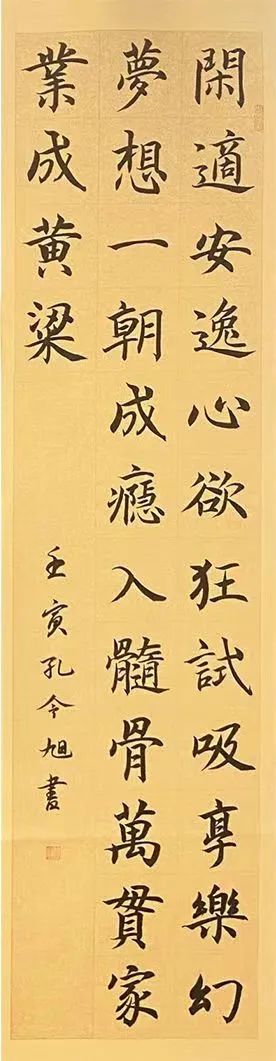 閑適安逸心欲狂試吸享樂幻
夢想一朝成癮入髓骨萬貫家
業成黄粱
壬寅孔令旭書